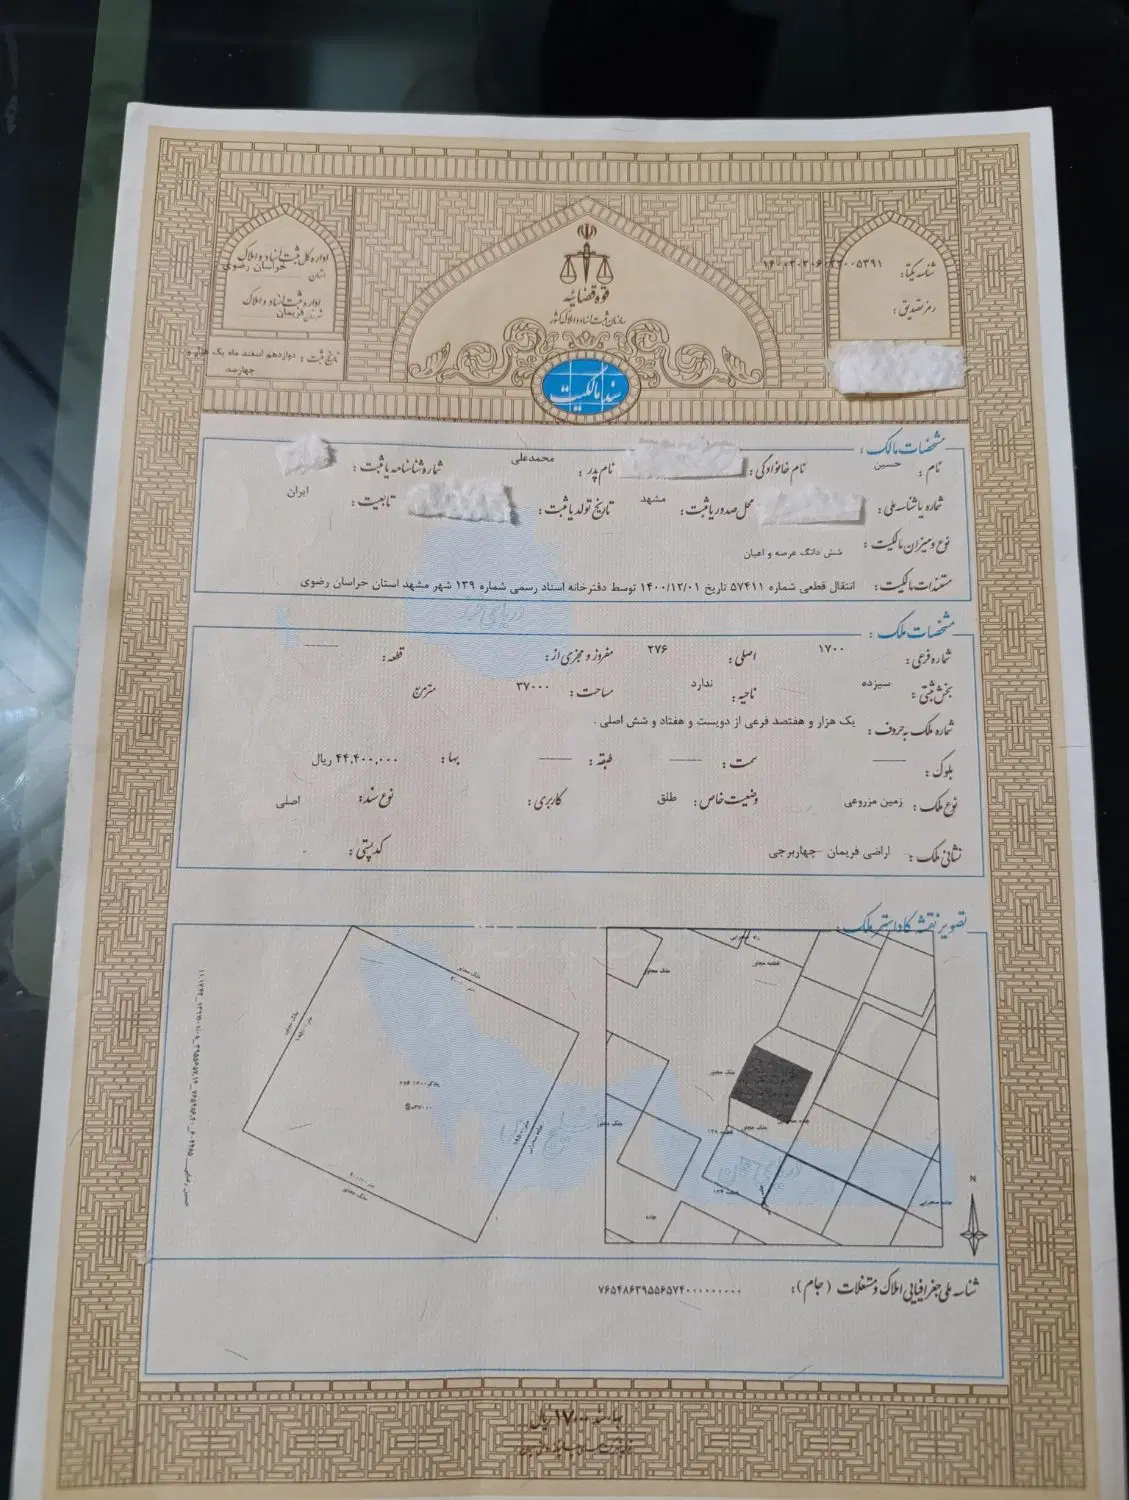 اداره کل ثبت اسناد و املاک
استان خراسان رضوی
اداره ثبت اسناد و املاک
شهرستان فریمان
تاریخ ثبت : دوازدهم اسفند ماه یک هزار و چهارصد
قوه قضائیه
سازمان ثبت اسناد و املاک کشور
سند مالکیت
شناسه یکتا:
رمز تصدیق :
مشخصات مالک :
نام : حسین نام خانوادگی : نام پدر : محمدعلی شماره شناسنامه یا ثبت :
شماره یا شناسه ملی : محل صدور یا ثبت : مشهد تاریخ تولد یا ثبت : تابعیت : ایران
نوع و میزان مالکیت : شش دانگ عرصه و اعیان
مستندات مالکیت : انتقال قطعی شماره ۵۷۴۱۱ تاریخ ۱۴۰۰/۱۲/۰۱ توسط دفترخانه اسناد رسمی شماره ۱۳۹ شهر مشهد استان خراسان رضوی
مشخصات ملک :
شماره فرعی : ۱۷۰۰ اصلی : ۲۷۶ مفروز و مجزی از : قطعه :
بخش ثبتی : سیزده ناحیه : ندارد مساحت : ۳۷۰۰۰ مترمربع
شماره ملک به حروف : یک هزار و هفتصد فرعی از دویست و هفتاد و شش اصلی .
بلوک : سمت : طبقه : بها : ۴۴,۴۰۰,۰۰۰ ریال
نوع ملک : زمین مزروعی وضعیت خاص : طلق کاربری : نوع سند : اصلی
نشانی ملک : اراضی فریمان -چهاربرجی کدپستی : -
تصویر نقشه کاداستر ملک :
دریای خزر
خلیج فارس
دریای عمان
ملک مجاور
ملک مجاور
ملک مجاور
ملک مجاور
قطعه مجاور
ملک مجاور
ملک مجاور
جاده
N
شناسه ملی جغرافیایی املاک و مستغلات (جام) : ۷۶۵۴۸۶۳۹۵۵۶۵۷۴۰۰۰۰۰۰۰۰۰۰
بهاء سند ۱۷۰۰۰ ریال